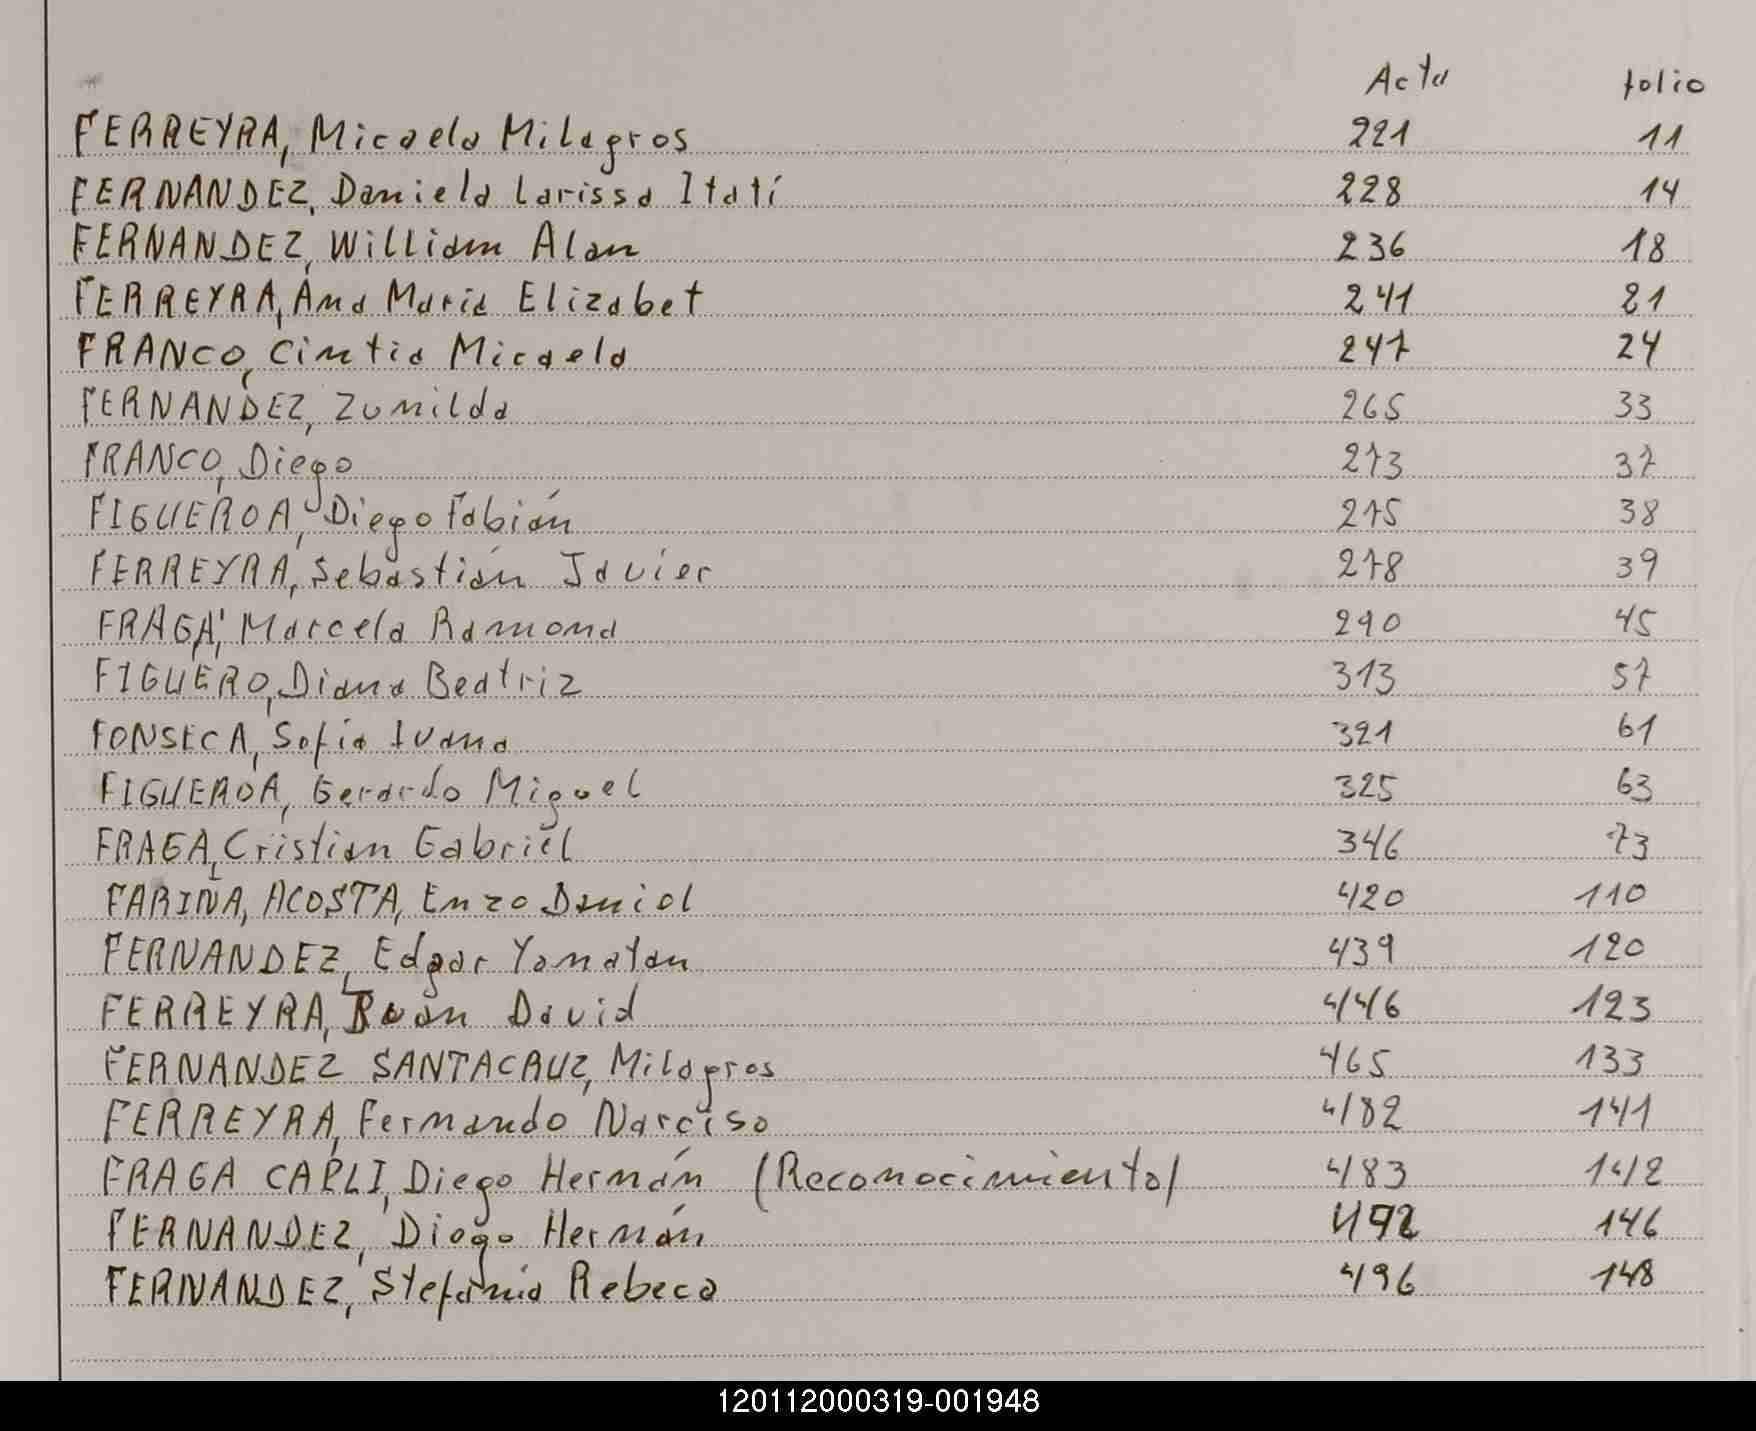 Acta folio
FERREYRA, Micaela Milagros 221 11
FERNANDEZ, Daniela Larissa Itatí 228 14
FERNANDEZ, William Alan 236 18
FERREYRA, Ana Maria Elizabet 241 21
FRANCO, Cintia Micaela 247 24
FERNANDEZ, Zunilda 265 33
FRANCO, Diego 273 37
FIGUEROA, Diego Fabián 275 38
FERREYRA, Sebastián Javier 278 39
FRAGA, Marcela Ramona 290 45
FIGUERO, Diana Beatriz 313 57
FONSECA, Sofia Ivana 321 61
FIGUEROA, Gerardo Miguel 325 63
FRAGA, Cristian Gabriel 346 73
FARIÑA, ACOSTA, Enzo Daniel 420 110
FERNANDEZ, Edgar Yonatan 439 120
FERREYRA, Juan David 446 123
FERNANDEZ SANTACRUZ, Milagros 465 133
FERREYRA, Fernando Narciso 482 141
FRAGA CARLI, Diego Hernán (Reconocimiento) 483 142
FERNANDEZ, Diego Hernán 492 146
FERNANDEZ, Stefania Rebeca 496 148
120112000319-001948